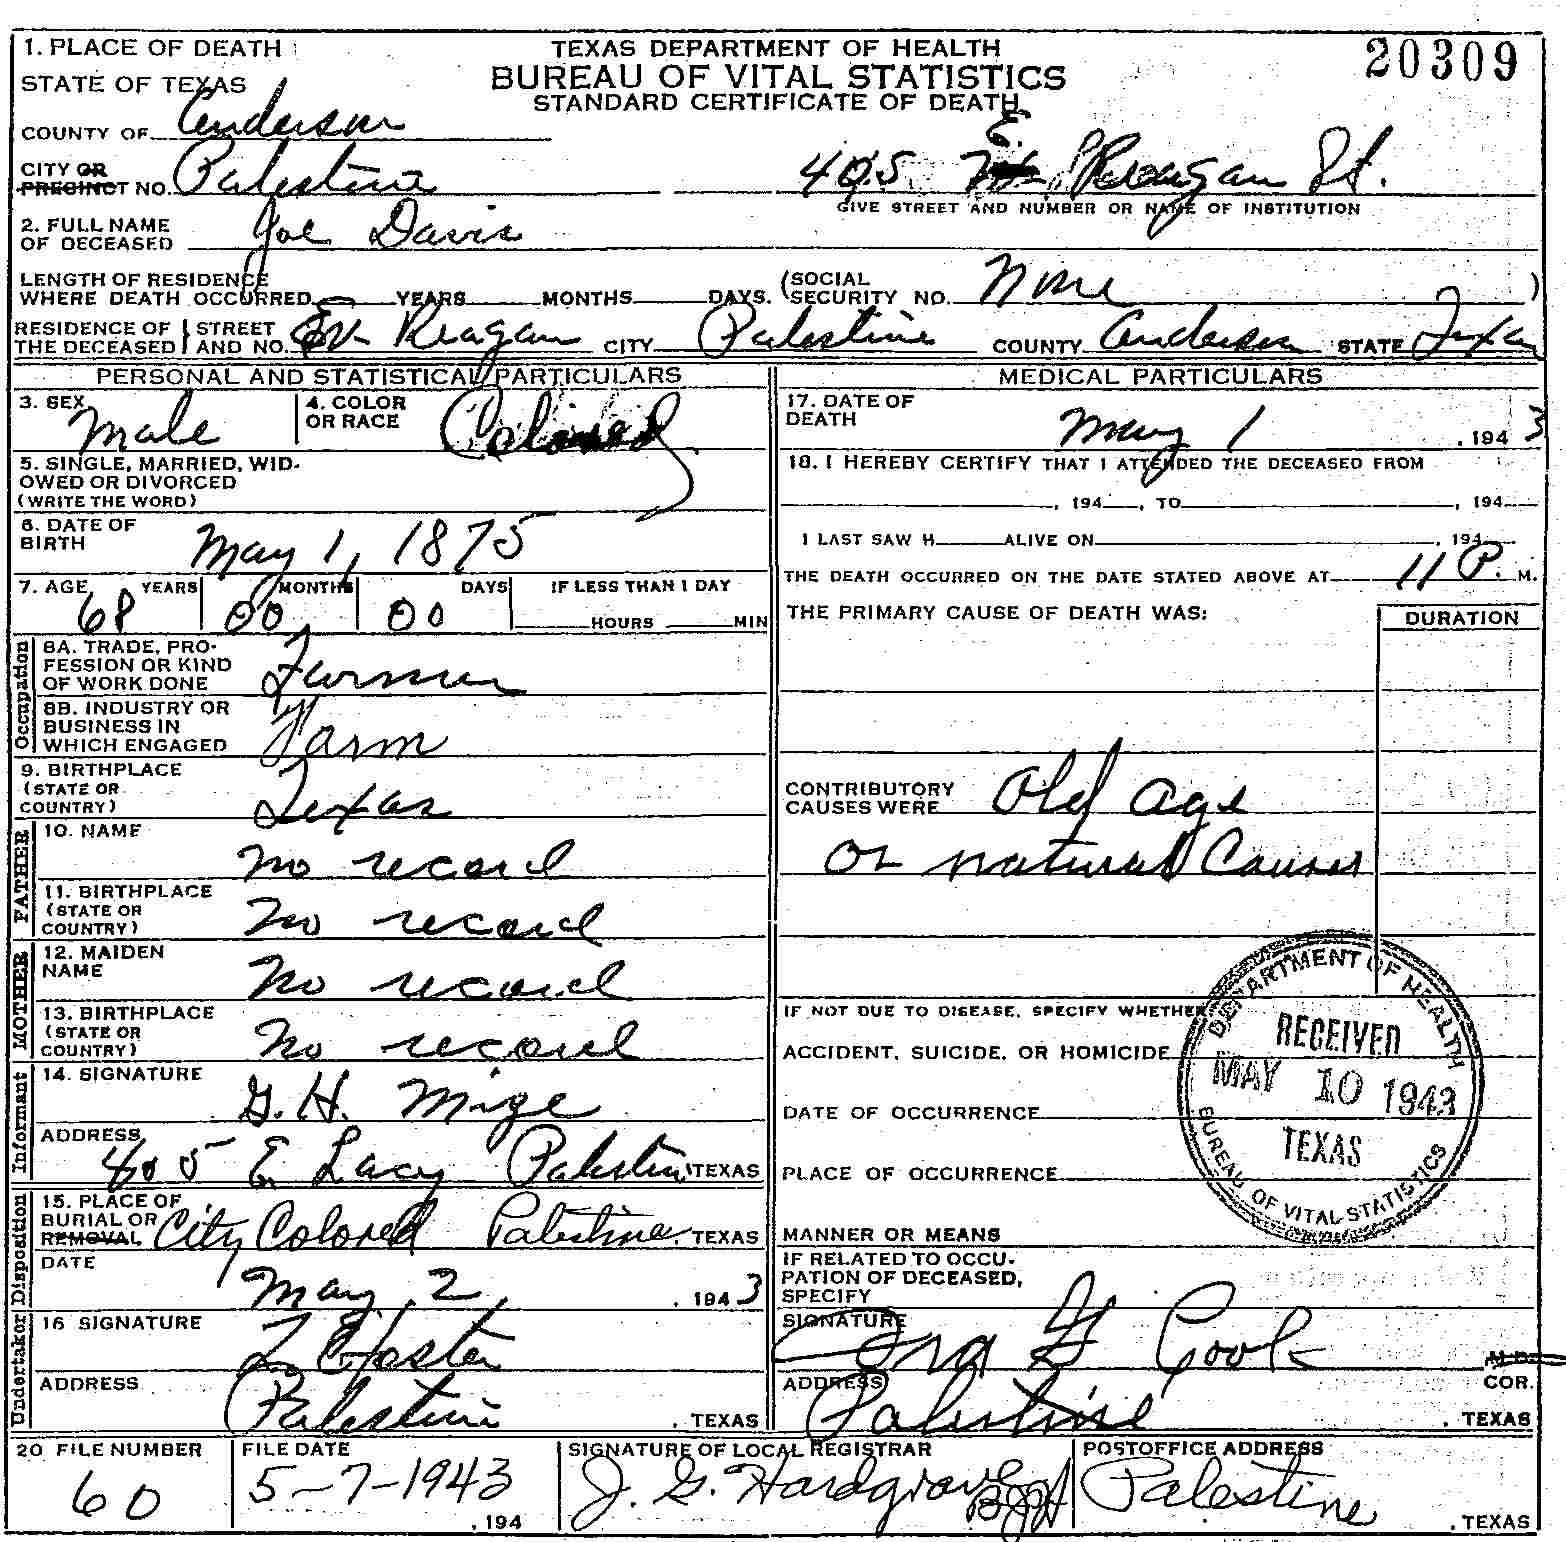 1. PLACE OF DEATH
TEXAS DEPARTMENT OF HEALTH
20309
STATE OF TEXAS
BUREAU OF VITAL STATISTICS
STANDARD CERTIFICATE OF DEATH
COUNTY OF Anderson
CITY OR PRECINCT NO. Palestine 405 E. Reagan St.
GIVE STREET AND NUMBER OR NAME OF INSTITUTION
2. FULL NAME OF DECEASED Joe Davis
LENGTH OF RESIDENCE WHERE DEATH OCCURRED YEARS MONTHS DAYS. (SOCIAL SECURITY NO. None )
RESIDENCE OF THE DECEASED STREET AND NO. Reagan CITY Palestine COUNTY Anderson STATE Texas
PERSONAL AND STATISTICAL PARTICULARS
3. SEX Male
4. COLOR OR RACE Colored
5. SINGLE, MARRIED, WID-
OWED OR DIVORCED
(WRITE THE WORD)
6. DATE OF BIRTH May 1, 1875
7. AGE YEARS MONTHS DAYS IF LESS THAN 1 DAY
68 00 00 HOURS MIN
Occupation
8A. TRADE, PRO-
FESSION OR KIND
OF WORK DONE Farmer
8B. INDUSTRY OR
BUSINESS IN
WHICH ENGAGED Farm
9. BIRTHPLACE
(STATE OR
COUNTRY) Texas
FATHER
10. NAME No record
11. BIRTHPLACE
(STATE OR
COUNTRY) No record
MOTHER
12. MAIDEN
NAME No record
13. BIRTHPLACE
(STATE OR
COUNTRY) No record
Informant
14. SIGNATURE G. H. Mize
ADDRESS 405 E Lacy Palestine TEXAS
Disposition
15. PLACE OF
BURIAL OR
REMOVAL City Colored Palestine TEXAS
DATE May 2, 1943
Undertaker
16 SIGNATURE
ADDRESS Palestine, TEXAS
MEDICAL PARTICULARS
17. DATE OF DEATH May 1, 1943
18. I HEREBY CERTIFY THAT I ATTENDED THE DECEASED FROM
, 194 , TO , 194
I LAST SAW H ALIVE ON , 194
THE DEATH OCCURRED ON THE DATE STATED ABOVE AT 11 P. M.
THE PRIMARY CAUSE OF DEATH WAS:
DURATION
CONTRIBUTORY
CAUSES WERE Old Age
or natural Causes
IF NOT DUE TO DISEASE, SPECIFY WHETHER
ACCIDENT, SUICIDE, OR HOMICIDE
DATE OF OCCURRENCE
PLACE OF OCCURRENCE
MANNER OR MEANS
DEPARTMENT OF HEALTH
RECEIVED
MAY 10 1943
TEXAS
BUREAU OF VITAL STATISTICS
IF RELATED TO OCCU-
PATION OF DECEASED,
SPECIFY
SIGNATURE Ira G Cook M.D.
COR.
ADDRESS Palestine, TEXAS
20 FILE NUMBER 60
FILE DATE 5-7-1943 , 194
SIGNATURE OF LOCAL REGISTRAR J. G. Hardgrave
POSTOFFICE ADDRESS Palestine, TEXAS